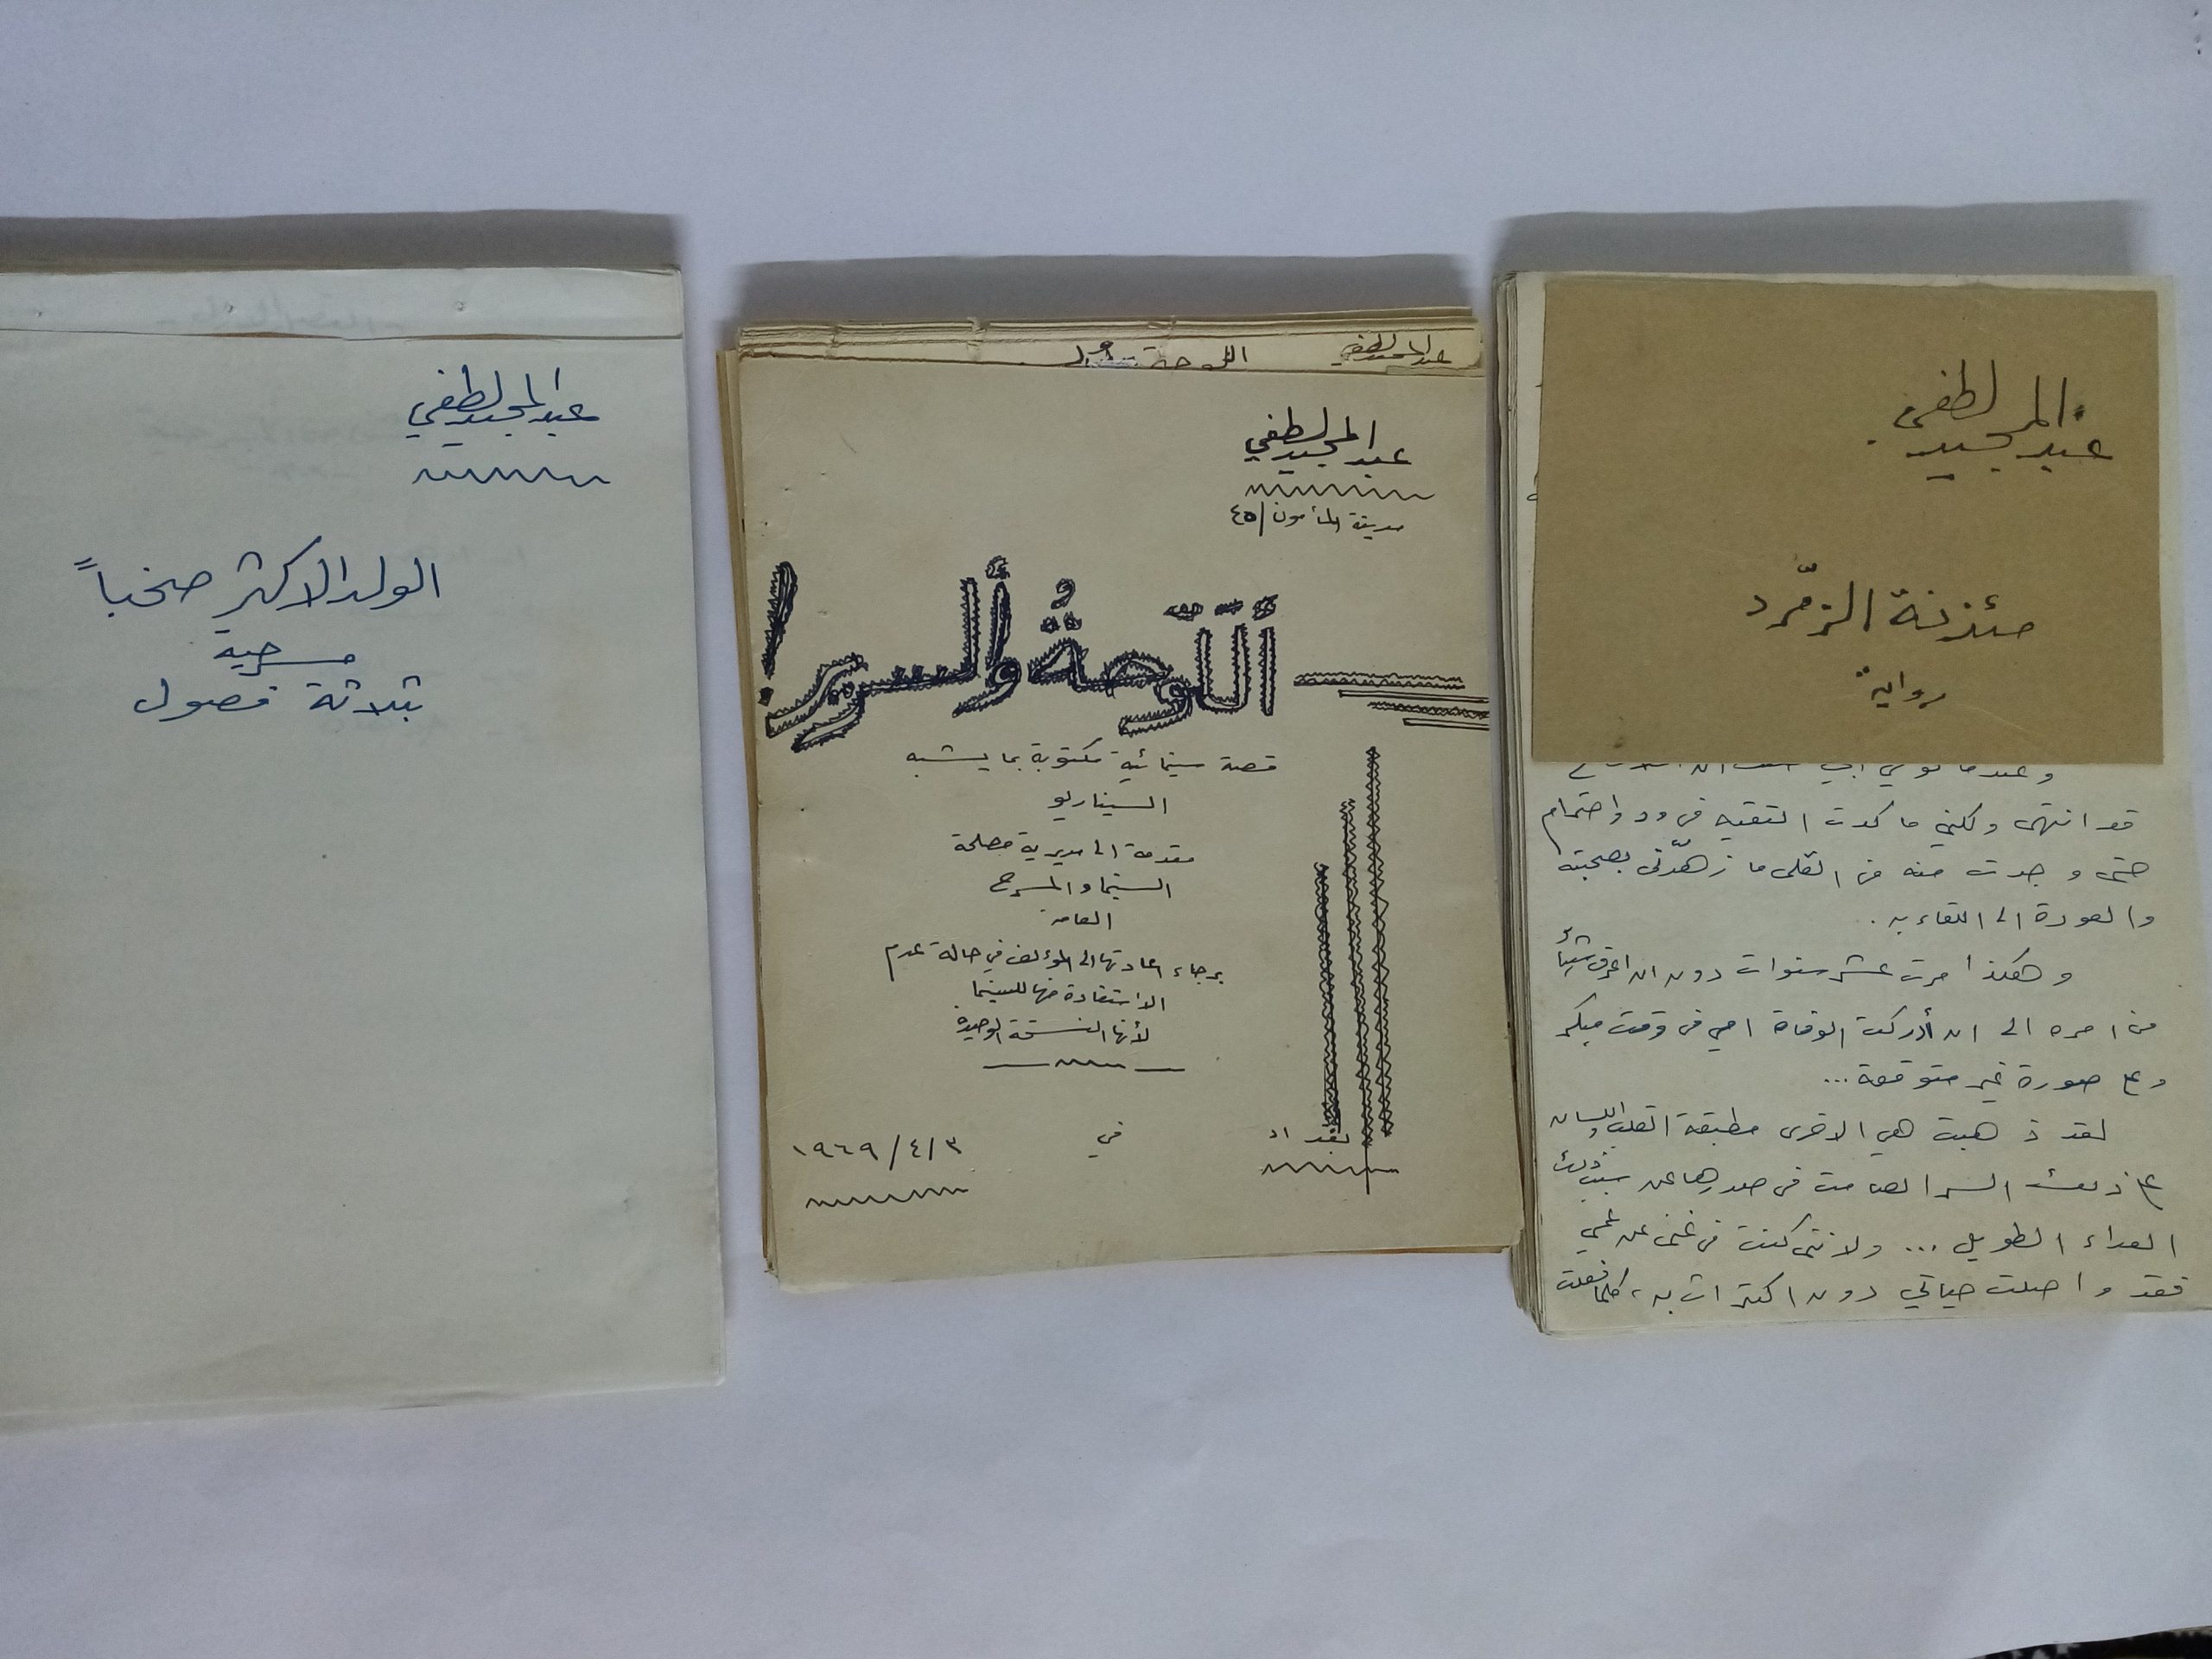 عبد المجيد لطفي
مئذنة الزمّرد
رواية
قد انتهى ولكني ما كدت التقيه في ود واهتمام
حتى وجدت منه من القلى ما زهّدني بصحبته
والعودة الى اللقاء به.
وهكذا مرت عشر سنوات دون ان اعرف شيئاً
من امره الى ان أدركت الوفاة امي في وقت مبكر
وعلى صورة غير متوقعة...
لقد ذهبت هي الاخرى مطبقة القلب واللسان
على ذلك السر الصامت في صدرها عن سبب ذلك
العداء الطويل... ولانني كنت في غنى عن عمي
فقد واصلت حياتي دون اكتراث به، كلما فعلت
عبد المجيد لطفي
عبد المجيد لطفي
مدينة المأمون/٤٥
قصة سينمائية مكتوبة بما يشبه
السيناريو
مقدمة الى مديرية مصلحة
السينما والمسرح
العامة
برجاء اعادتها الى المؤلف في حالة عدم
الاستفادة منها للسينما
لأنها النسخة الوحيدة
بغداد في ١٩٦٩/٤/٣
عبد المجيد لطفي
الولد الاكثر صخباً
مسرحية
بثلاثة فصول